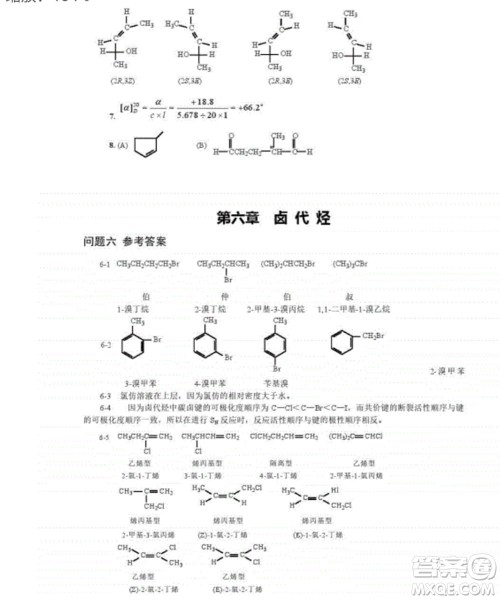 H CH₃ CH₃ H H CH₃ CH₃ H
H OH HO H H OH HO H
CH₃ CH₃ CH₃ CH₃
(2R,3Z) (2S,3E) (2R,3E) (2S,3E)
7. [α]²⁰D = α/(c×l) = +18.8/(5.678÷20×1) = +66.2°
8. (A) (B) H—C—CH₂CH₂—C—C—H
第六章 卤 代 烃
问题六 参考答案
6-1 CH₃CH₂CH₂CH₂Br CH₃CH₂CHCH₃ (CH₃)₂CHCH₂Br (CH₃)₃CBr
Br
伯 仲 伯 叔
1-溴丁烷 2-溴丁烷 2-甲基-3-溴丙烷 1,1-二甲基-1-溴乙烷
CH₃ CH₃ CH₃ CH₂Br
6-2 Br
Br Br
2-溴甲苯
3-溴甲苯 4-溴甲苯 苄基溴
6-3 氯仿溶液在上层，因为氯仿的相对密度大于水。
6-4 因为卤代烃中碳卤键的可极化度顺序为 C—Cl＜C—Br＜C—I，而共价键的断裂活性顺序与键
的可极化度顺序一致，所以在进行 SN 反应时，反应活性顺序与键的极性顺序相反。
6-5 CH₃CH₂C=CH₂ CH₃CHCH=CH₂ ClCH₂CH₂CH=CH₂ (CH₃)₂C=CHCl
Cl Cl
乙烯型 烯丙基型 隔离型 乙烯型
2-氯-1-丁烯 3-氯-1-丁烯 4-氯-1-丁烯 2-甲基-1-氯丙烯
CH₃—C=CH₂ H₃C CH₂Cl
CH₂Cl H H
烯丙基型 烯丙基型 烯丙基型
2-甲基-3-氯丙烯 (Z)-1-氯-2-丁烯 (E)-1-氯-2-丁烯
H₃C Cl H₃C CH₃
H CH₃ H Cl
乙烯型 乙烯型
(Z)-2-氯-2-丁烯 (E)-2-氯-2-丁烯
答案圈